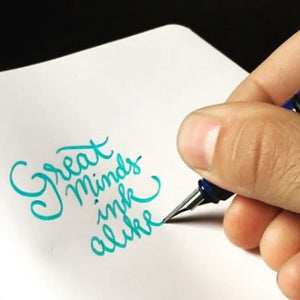 Great
minds
ink
alike